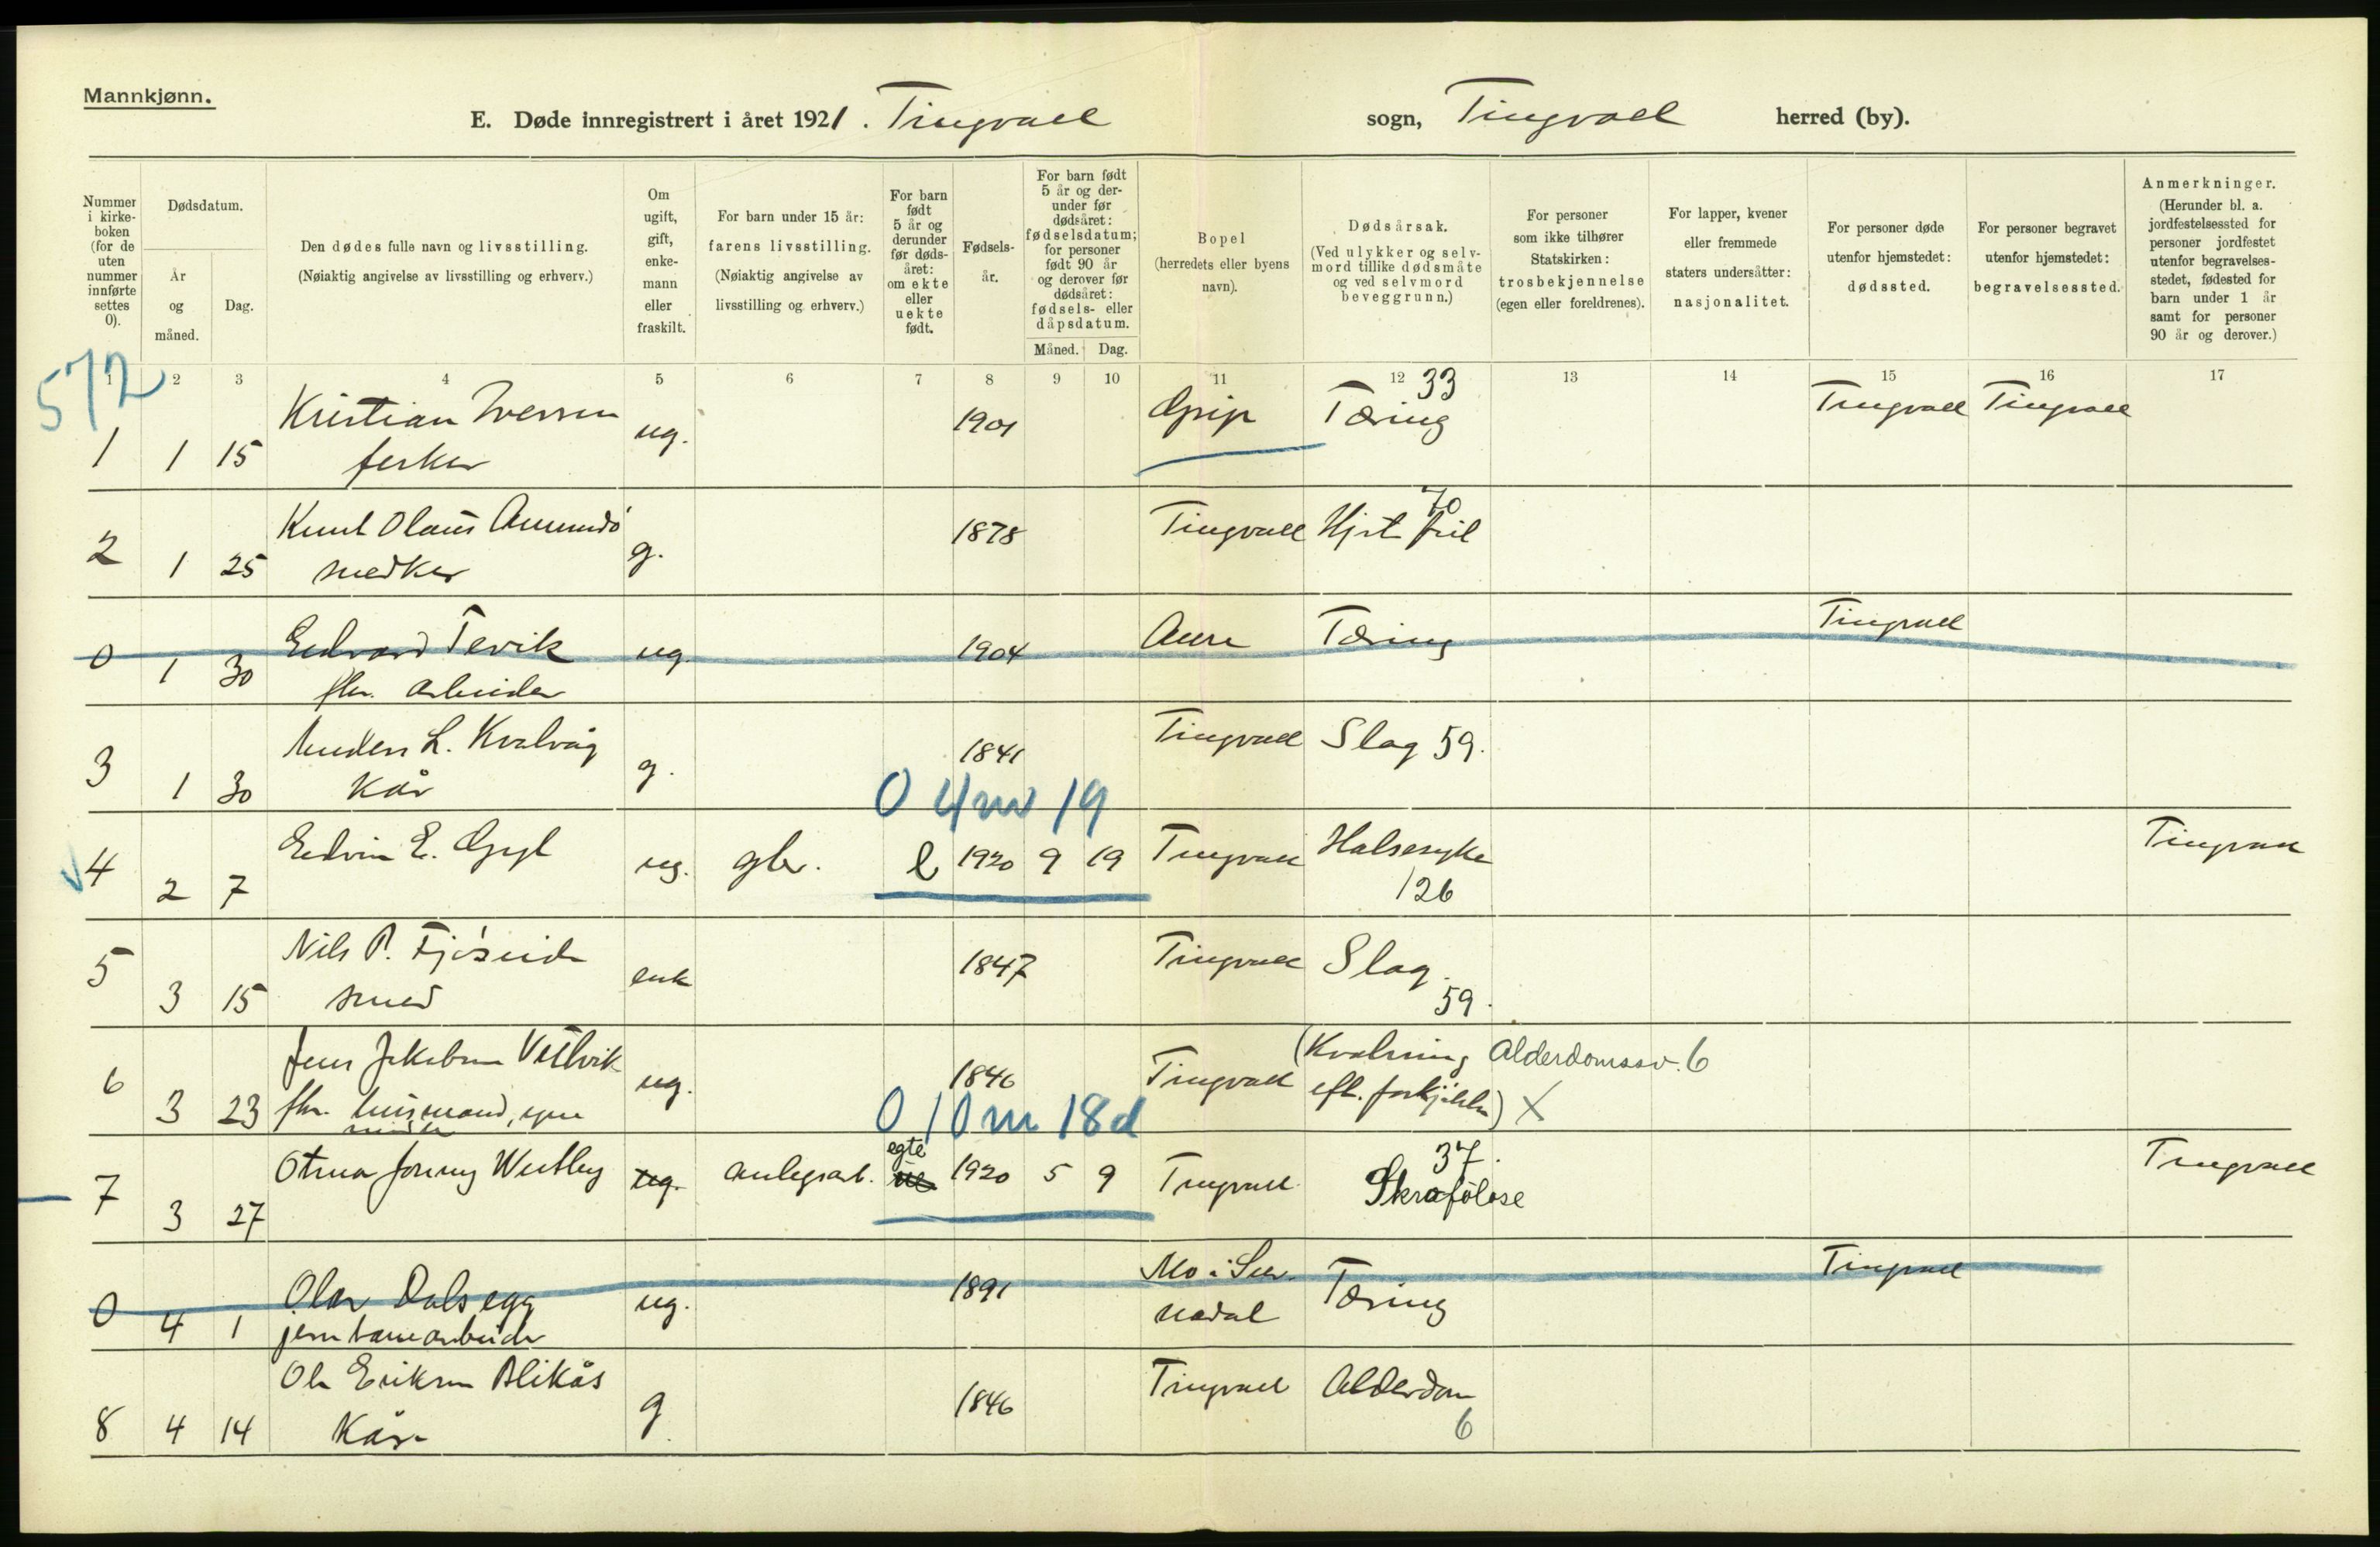 Mannkjønn.
E. Døde innregistrert i året 1921. Tingvoll sogn, Tingvoll herred (by).
Nummer i kirke-boken (for de uten nummer innførte settes 0).
Dødsdatum.
År og måned.
Dag.
Den dødes fulle navn og livsstilling.
(Nøiaktig angivelse av livsstilling og erhverv.)
Om ugift, gift, enke-mann eller fraskilt.
For barn under 15 år:
farens livsstilling.
(Nøiaktig angivelse av livsstilling og erhverv.)
For barn født 5 år og derunder før døds-året: om ekte eller uekte født.
Fødsels-år.
For barn født 5 år og der-under før dødsåret: fødselsdatum; for personer født 90 år og derover før dødsåret: fødsels- eller dåpsdatum.
Måned. Dag.
Bopel
(herredets eller byens navn).
Dødsårsak.
(Ved ulykker og selv-mord tillike dødsmåte og ved selvmord beveggrunn.)
For personer som ikke tilhører Statskirken:
trosbekjennelse
(egen eller foreldrenes).
For lapper, kvener eller fremmede staters undersåtter:
nasjonalitet.
For personer døde utenfor hjemstedet:
dødssted.
For personer begravet utenfor hjemstedet:
begravelsessted.
Anmerkninger.
(Herunder bl. a. jordfestelsessted for personer jordfestet utenfor begravelses-stedet, fødested for barn under 1 år samt for personer 90 år og derover.)
1 2 3 4 5 6 7 8 9 10 11 12 13 14 15 16 17
572
33
1 1 15 Kristian Iversen ug. 1901 Grip Tæring Tingvoll Tingvoll
fisker
70
2 1 25 Knut Olaus Amundø g. 1878 Tingvoll Hjertfeil
snedker
0 1 30 Edvard Tevik ug. 1904 Aure Tæring Tingvoll
fhv. arbeider
3 1 30 Anders L. Kvalvåg g. 1841 Tingvoll Slag 59.
Kår
0 4 m 19
4 2 7 Edvin E. Gyl ug. gbr. e 1920 9 19 Tingvoll Halsesyke Tingvoll
126
5 3 15 Nils P. Fjøseide enk 1847 Tingvoll Slag.
smed 59.
6 3 23 Jens Jakobsen Vettvik ug. 1846 Tingvoll (Kvelning Alderdomssv. 6
fhv. husmand, efl. X
0 10 m 18 d
egte 37.
7 3 27 Otmar Jonny Westby ug. anlegsarb. 1920 5 9 Tingvoll Skrofoløse Tingvoll
0 4 1 Olav Dalsegg ug. 1891 Mo i Sur- Tæring Tingvoll
jernbanearbeider nadal
8 4 14 Ole Eriksen Blikås g. 1846 Tingvoll Alderdom
Kår 6